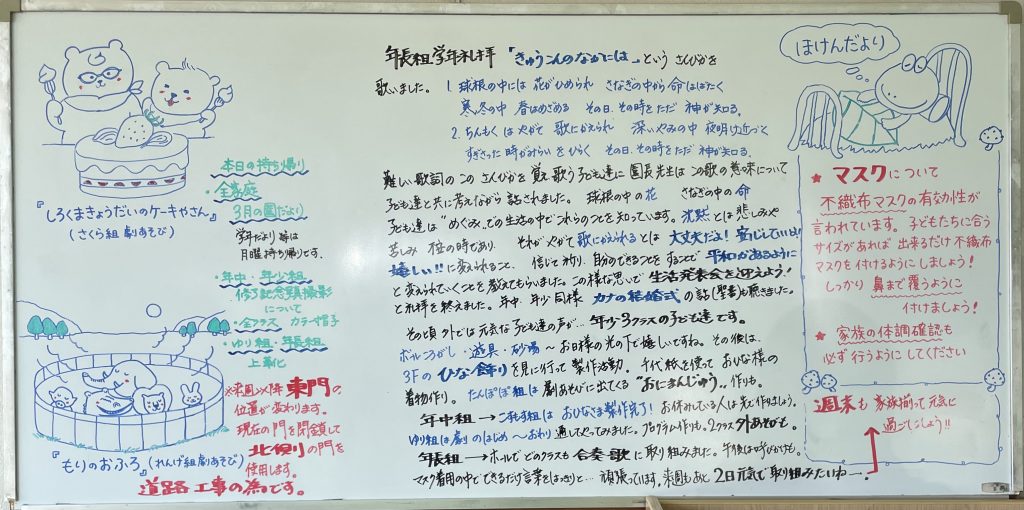 『しろくまきょうだいのケーキやさん』
(さくら組 劇あそび)
本日の持ち帰り
・全家庭
3月の園だより
学年だより等は
月曜持ち帰りです。
・年中・年少組
修了記念題撮影
について
・全クラス カラー帽子
・ゆり組・年長組
上靴
『もりのおふろ』(れんげ組劇あそび)
※来週以降 東門の
位置が変わります。
現在の門を閉鎖して
北側の門を
使用します。
道路工事の為です。
年長組 学年礼拝 「きゅうこんのなかには」という さんびかを
歌いました。 1. 球根の中には 花がひめられ さなぎの中から 命はばたく
寒い冬の中 春はめざめる その日、その時をただ 神が知る。
2. ちんもくは やがて 歌にかえられ 深いやみの中 夜明け近づく
すぎさった 時がみらいを ひらく その日、その時をただ 神が知る。
難しい歌詞の この さんびかを 覚え 歌う子ども達に 園長先生は この歌の意味について
子ども達と共に考えながら 話されました。 球根の中の 花 さなぎの中の 命
子ども達は "めぐみ"での生活の中でこれらのことを知っています。 沈黙とは 悲しみや
苦しみ 怪の時であり それが やがて 歌にかえられるとは 大丈夫だよ! 安心していいよ!
嬉しい!! に変えられること、 信じて祈り、自分のできることを することで 平和があるように
と変えられていくことを教えてもらいました。この様な思いで 生活発表会を迎えよう!
と礼拝を終えました。 年中、年少同様 カナの結婚式 の話(聖書)も聴きました。
その頃 外では 元気な子ども達の声が… 年少3クラスの子ども達です。
ボールころがし・遊具・砂場〜 お日様の光の下で 嬉しいですね。その後は、
3Fの ひな飾り を見に行って 製作活動。 千代紙を使って おひな様の
着物作り。 たんぽぽ組は 劇あそびに出てくる "おにまんじゅう" 作りも。
年中組 → こすもす組は おひなさま製作完了! お休みしている人は 先で作りましょう。
ゆり組は劇のはじめ〜おわり 通してやってみました。プログラム作りも。2クラス 外あそびも。
年長組 → ホールで どのクラスも 合奏・歌 に取り組みました。
マスク着用の中で できるだけ言葉をはっきりと… 頑張っています。来週もあと 2日元気で 取り組みたいねー!
ほけんだより
★ マスクについて
不織布マスクの有効性が
言われています。 子どもたちに合う
サイズがあれば 出来るだけ 不織布
マスクを付けるように しましょう!
しっかり 鼻まで覆うように
付けましょう!
★ 家族の体調確認も
必ず行うように してください
週末も 家族揃って元気に
過ごしましょう!!